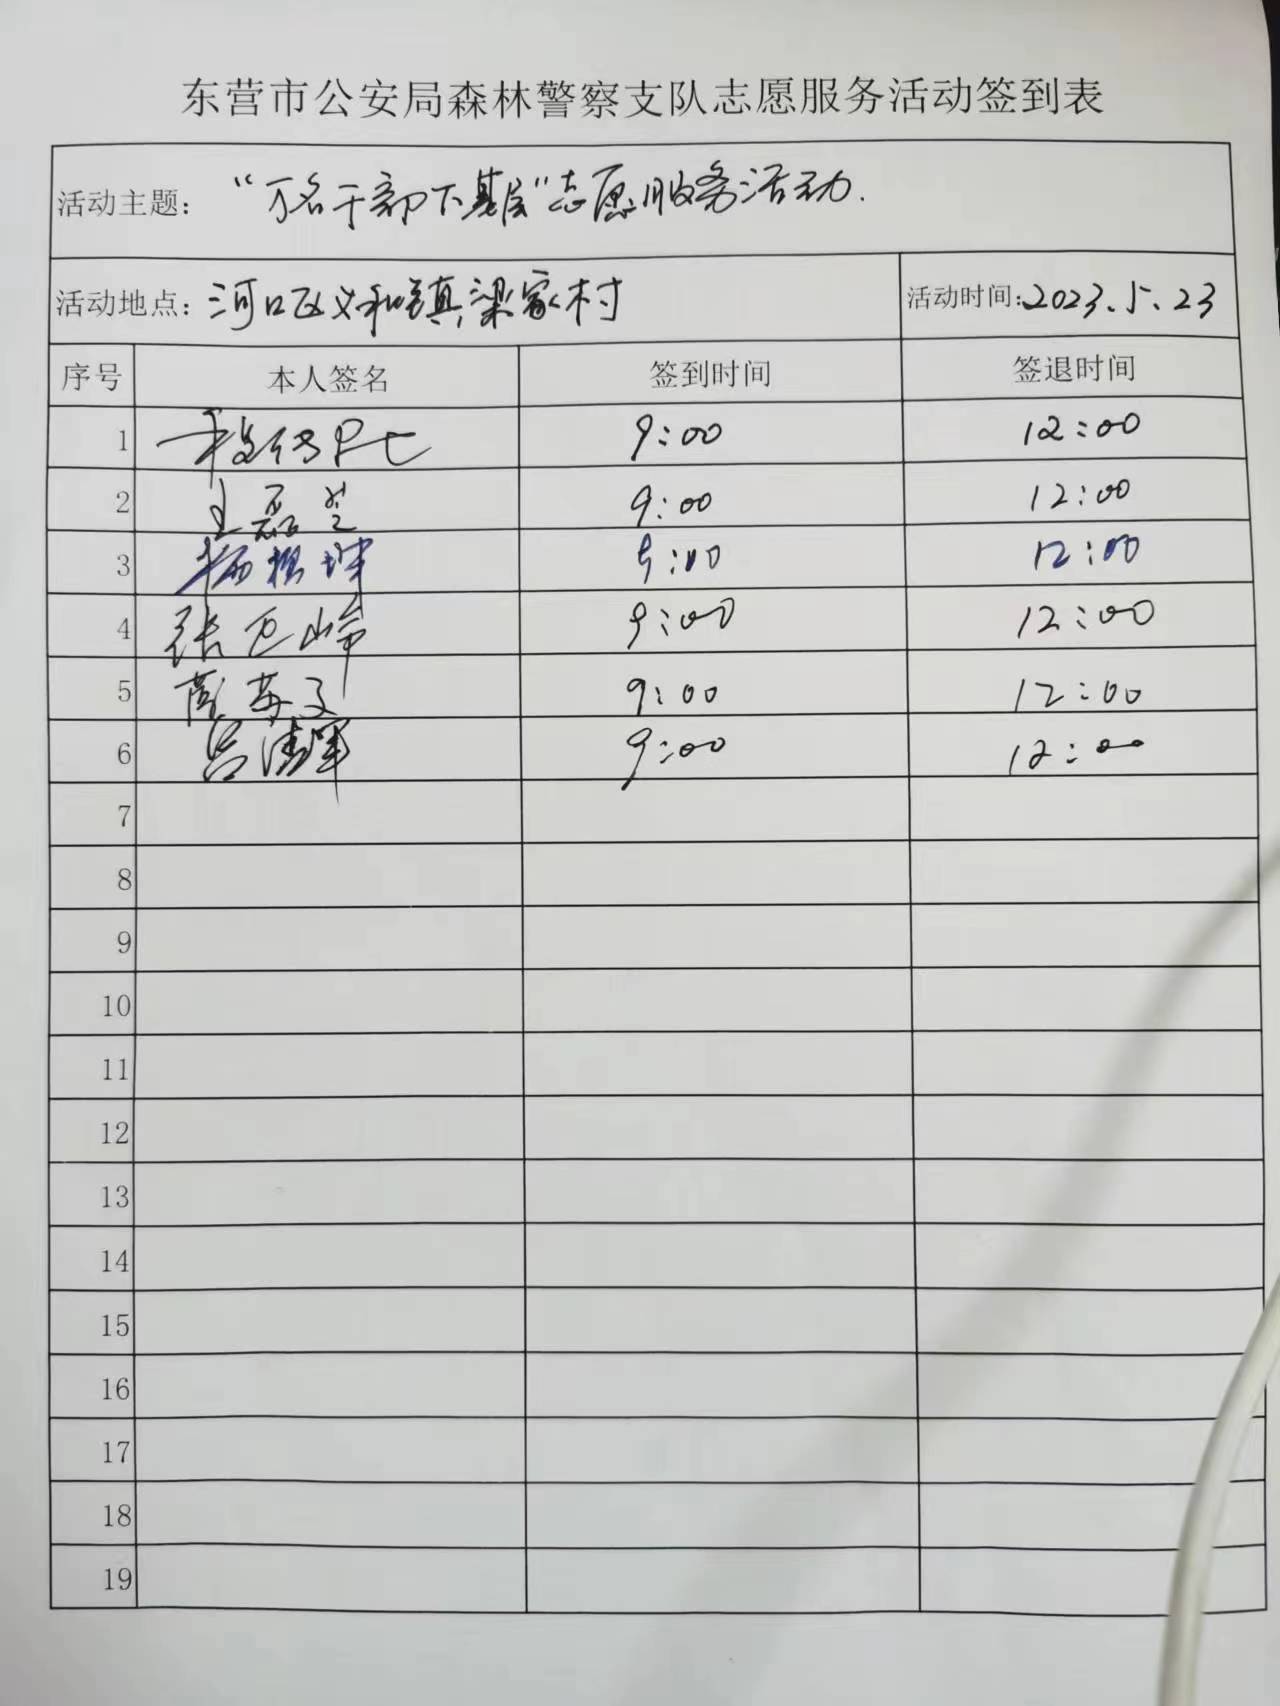 东营市公安局森林警察支队志愿服务活动签到表
活动主题：“万名干部下基层”志愿服务活动.
活动地点：河口区义和镇梁家村 活动时间：2023.5.23
序号 本人签名 签到时间 签退时间
1 9:00 12:00
2 王磊 9:00 12:00
3 杨根坤 9:00 12:00
4 张 峰 9:00 12:00
5 文 9:00 12:00
6 吕清军 9:00 12:00
7
8
9
10
11
12
13
14
15
16
17
18
19